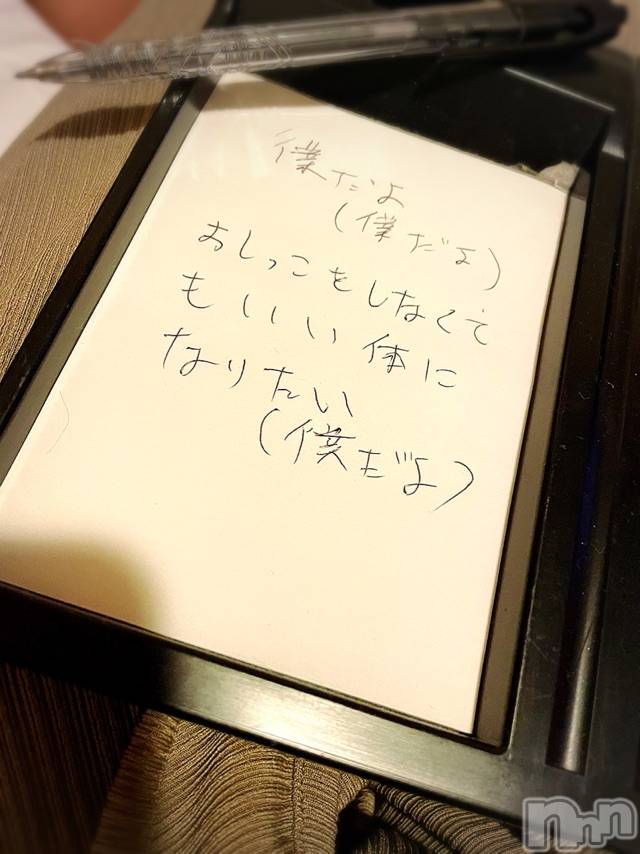 僕だよ
(僕だよ)
おしっこをしなくて
もいい体に
なりたい
(僕だよ)
nnn